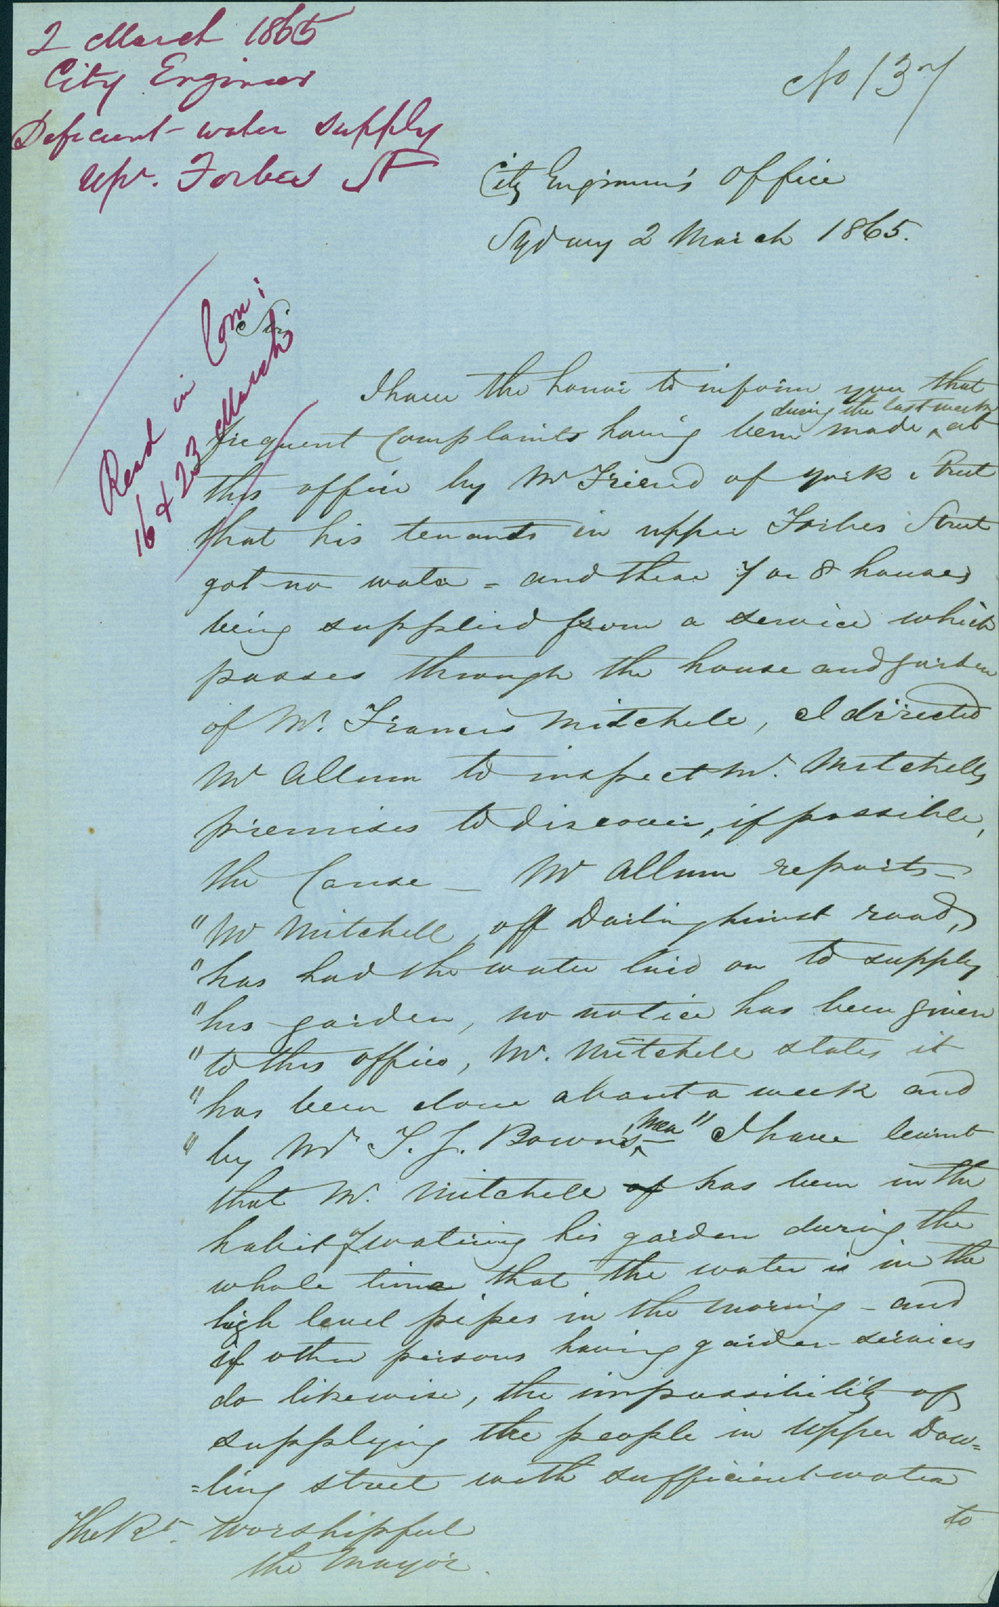 2 March 1865
City Engineer
Deficient water supply
Upr. Forbes St
No 137
City Engineer's Office
Sydney 2 March 1865.
Read in Com:
16 & 23 March
Sir,
I have the honor to inform you that
during the last week
frequent Complaints having been made ^ at
this office by Mr Friend of York Street
that his tenants in upper Forbes Street
got no water = and these 7 or 8 houses
being supplied from a service which
passes through the house and garden
of Mr. Francis Mitchell, I directed
Mr Allum to inspect Mr. Mitchells
premises to discover, if possible,
the Cause – Mr Allum reports –
"Mr Mitchell, off Darlinghurst road,
"has had the water laid on to supply
"his garden, no notice has been given
"to this office, Mr. Mitchell states it
"has been done about a week and
"by Mr T. J. Bown's ^ men" I have learnt
that Mr. Mitchell of has been in the
habit of watering his garden during the
whole time that the water is in the
high level pipes in the morning – and
if other persons having garden services
do likewise, the impossibility of
supplying the people in Upper Dow=
=ling street with sufficient water
to
The Rt. Worshipful
the Mayor.